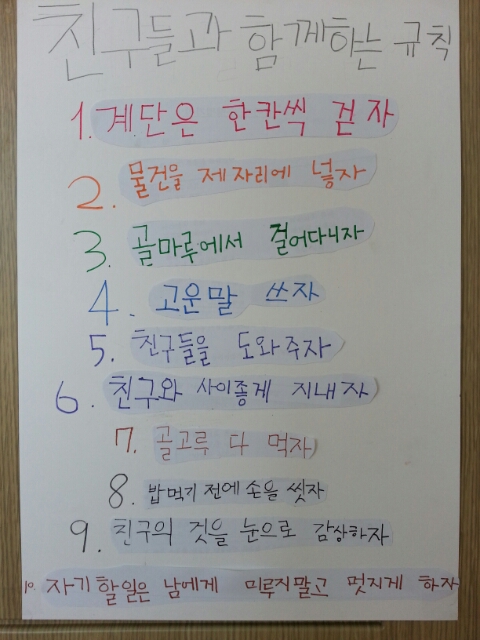 친구들과 함께하는 규칙
1. 계단은 한칸씩 걷자
2. 물건을 제자리에 넣자
3. 골마루에서 걸어다니자
4. 고운말 쓰자
5. 친구들을 도와주자
6. 친구와 사이좋게 지내자
7. 골고루 다 먹자
8. 밥먹기 전에 손을 씻자
9. 친구의 것을 눈으로 감상하자
10. 자기 할일은 남에게 미루지말고 멋지게 하자